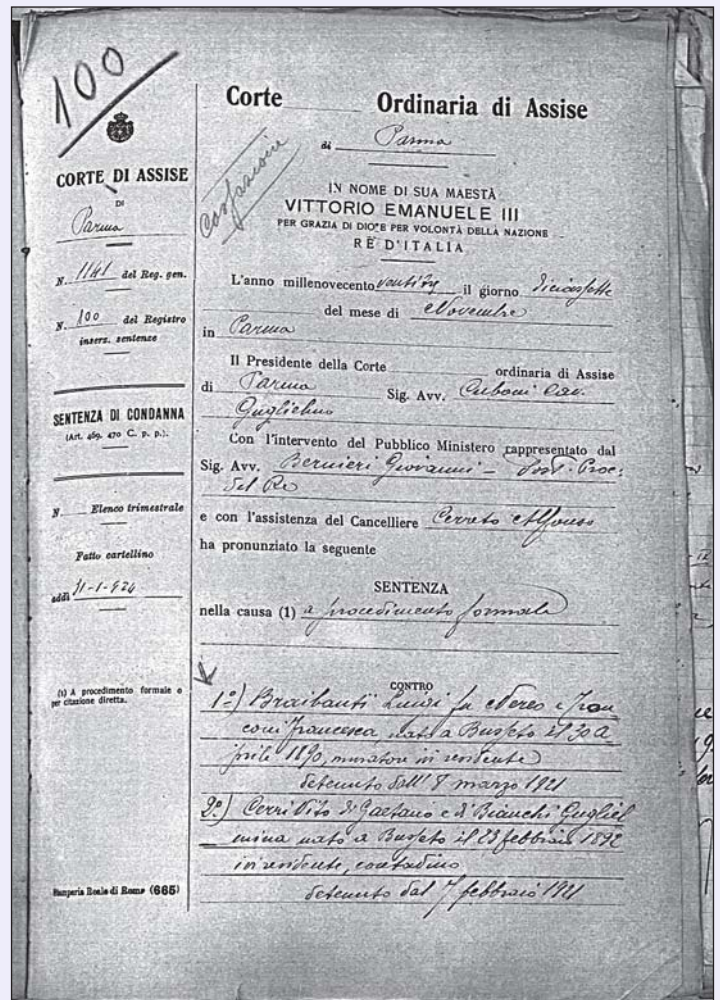 100
CORTE DI ASSISE
DI
Parma
N. 1141 del Reg. gen.
N. 100 del Registro
inserz. sentenze
SENTENZA DI CONDANNA
(Art. 469, 470 C. p. p.).
N. Elenco trimestrale
Fatto cartellino
addì 31-1-924
(1) A procedimento formale o
per citazione diretta.
Stamperia Reale di Roma (665)
Corte Ordinaria di Assise
di Parma
IN NOME DI SUA MAESTÀ
VITTORIO EMANUELE III
PER GRAZIA DI DIO E PER VOLONTÀ DELLA NAZIONE
RE D'ITALIA
L'anno millenovecento il giorno diciassette
del mese di Novembre
in Parma
Il Presidente della Corte ordinaria di Assise
di Parma Sig. Avv. Cuboni Cav.
Guglielmo
Con l'intervento del Pubblico Ministero rappresentato dal
Sig. Avv. Bernieri Giovanni - Sost. Proc:
del Re
e con l'assistenza del Cancelliere Cerreto Alfonso
ha pronunziato la seguente
SENTENZA
nella causa (1) a procedimento formale
CONTRO
1º) Braibanti Luigi fu Nereo e Fran
coni Francesca, nato a Busseto il 30 a
prile 1890, muratore ivi residente
detenuto dall' 8 marzo 1921
2º) Cerri Vito di Gaetano e di Bianchi Gugliel
mina nato a Busseto il 23 febbraio 1892
ivi residente, contadino
detenuto dal 7 febbraio 1921